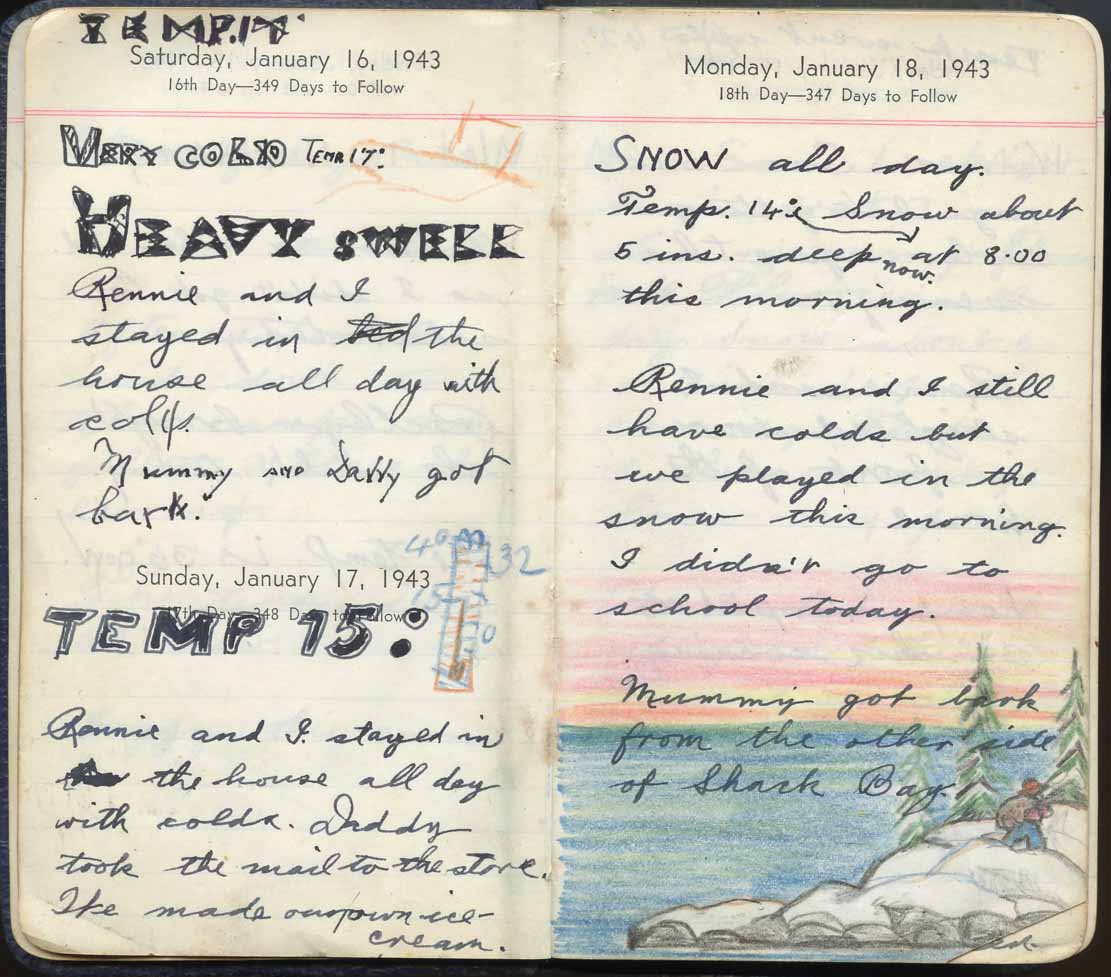 TEMP. 17°
Saturday, January 16, 1943
16th Day—349 Days to Follow
VERY COLD TEMP 17°
HEAVY SWELL
Rennie and I
stayed in bed the
house all day with
colds.
Mummy AND Daddy got
back.
Sunday, January 17, 1943
17th Day—348 Days to Follow
TEMP 15°
40
32
0
Rennie and I stayed in
the house all day
with colds. Daddy
took the mail to the store.
We made our own ice-
cream.
Monday, January 18, 1943
18th Day—347 Days to Follow
SNOW all day.
Temp. 14° Snow about
5 ins. deep now. at 8.00
this morning.
Rennie and I still
have colds but
we played in the
snow this morning.
I didn't go to
school today.
Mummy got back
from the other side
of Shack Bay.